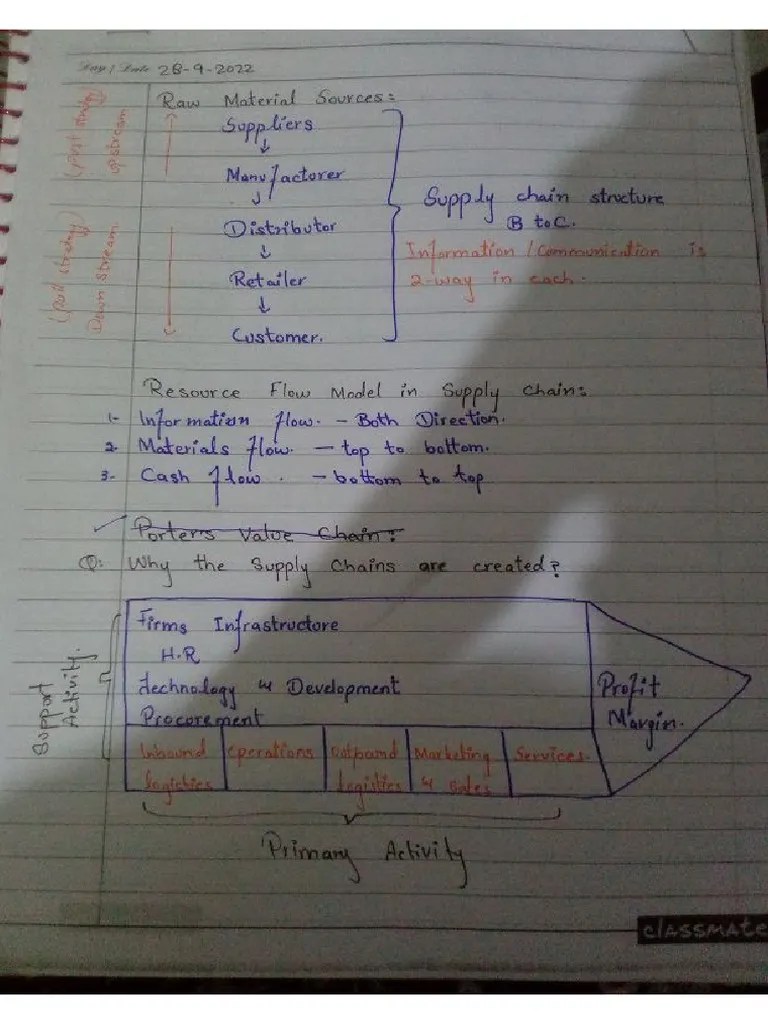 Day / Date 28-9-2022
Raw Material Sources:
Suppliers
Manufactorer
Distributor
Retailer
Customer.
upstream
Down Stream
Supply chain structure
B to C.
Information / Communication is
2-way in each.
Resource Flow Model in Supply chain:
1- Information flow. - Both Direction.
2- Materials flow. - top to bottom.
3- Cash flow. - bottom to top
Porters Value Chain:
Q: Why the Supply Chains are created?
Support
Activity.
Firms Infrastructore
H.R
technology & Development
Procorement
Inbound
logistics
operations
Outbound
logistics
Marketing
& sales
Services.
Profit
Margin.
Primary Activity
classmate